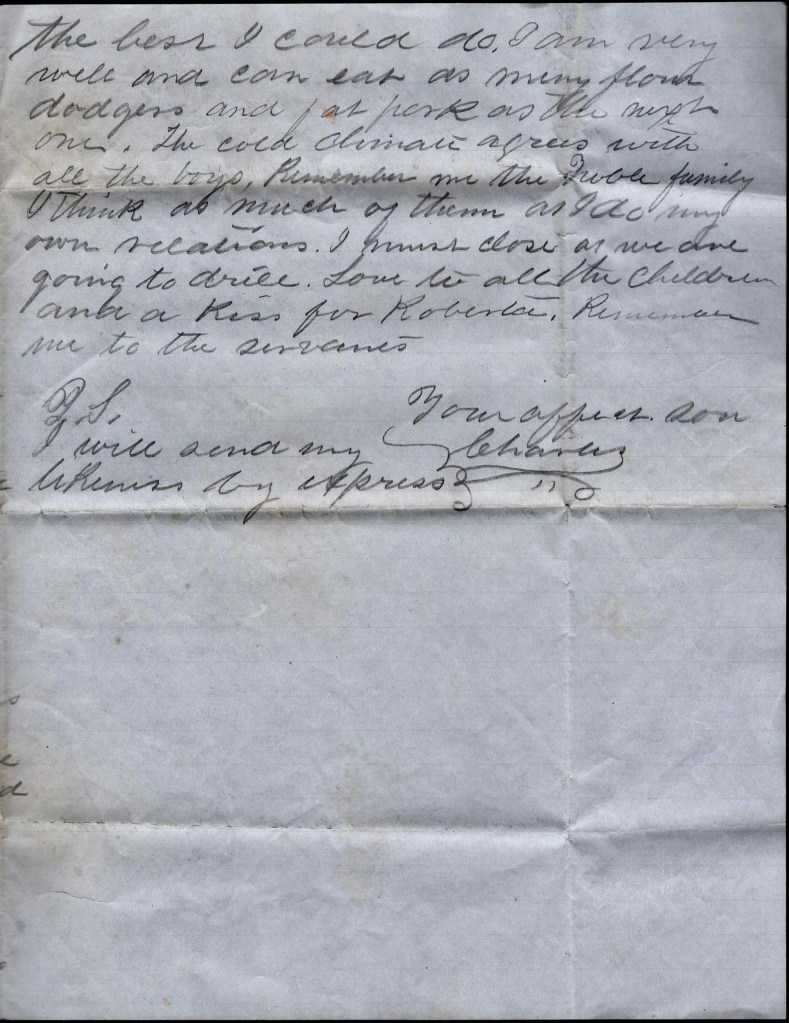 the best I could do. I am very
well and can eat as many flour
dodgers and fat pork as the next
one. The cold climate agrees with
all the boys, Remember me the Noble family
I think as much of them as I do my
own relations. I must close as we are
going to drill. Love to all the children
and a kiss for Roberta. Remember
me to the servants
Your affect. son
Charles
P.S.
I will send my
likeness by express